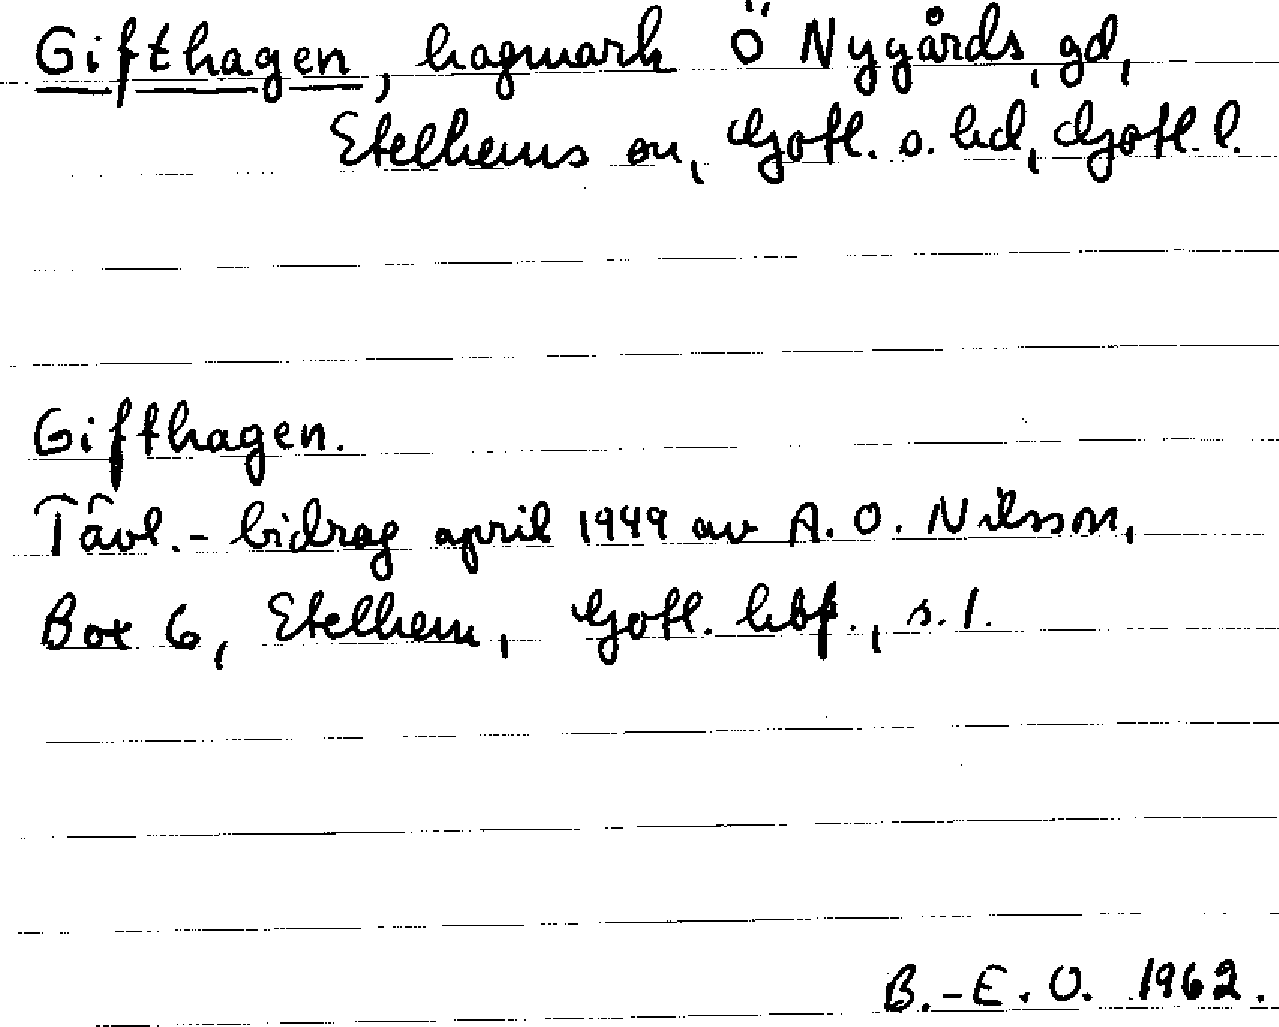 Gifthagen, hagmark Ö Nygårds, gd,
Etelhems sn, Gotl. s. hd, Gotl. l.
Gifthagen.
Tävl.- bidrag april 1949 av A. O. Nilsson,
Box 6, Etelhem, Gotl. hbf., s. 1.
B.-E. O. 1962.